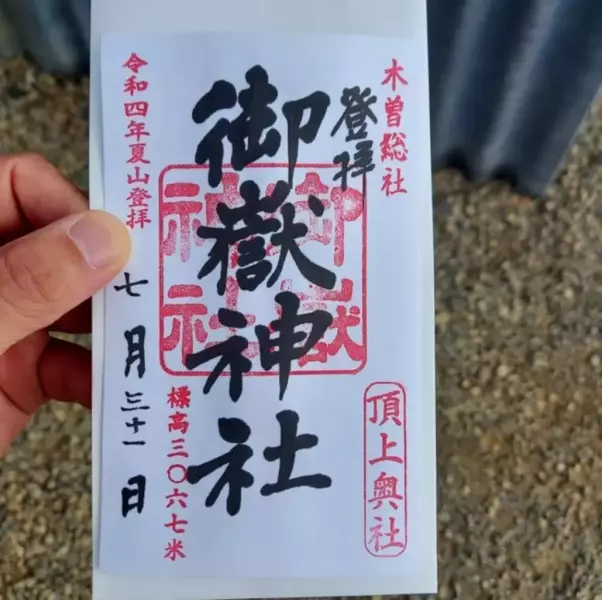 木曽総社
登拝
御嶽神社
御嶽
神社
頂上奥社
標高三〇六七米
令和四年夏山登拝
七月三十一日